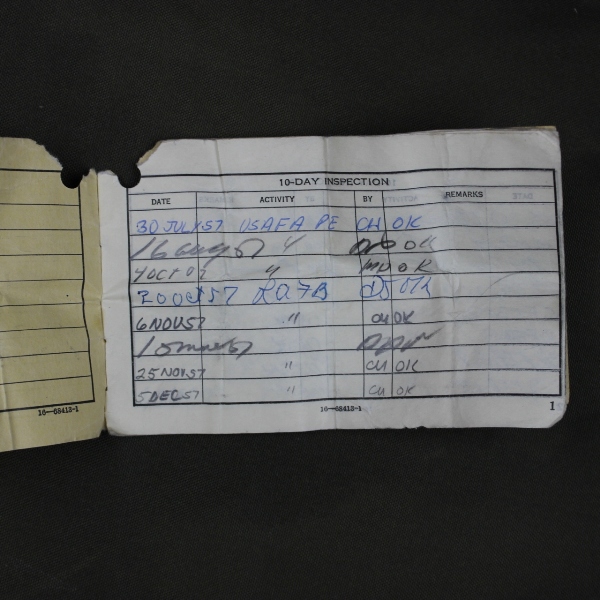 10-DAY INSPECTION
DATE ACTIVITY BY REMARKS
30 JULY 57 USAFA PE CH OK
16 Aug 57 " OK
4 OCT " OK
20 Oct 57 OK
6 NOV 57 " CH OK
57
25 NOV 57 " CH OK
5 DEC 57 " CH OK
16—68413-1 16—68413-1 1